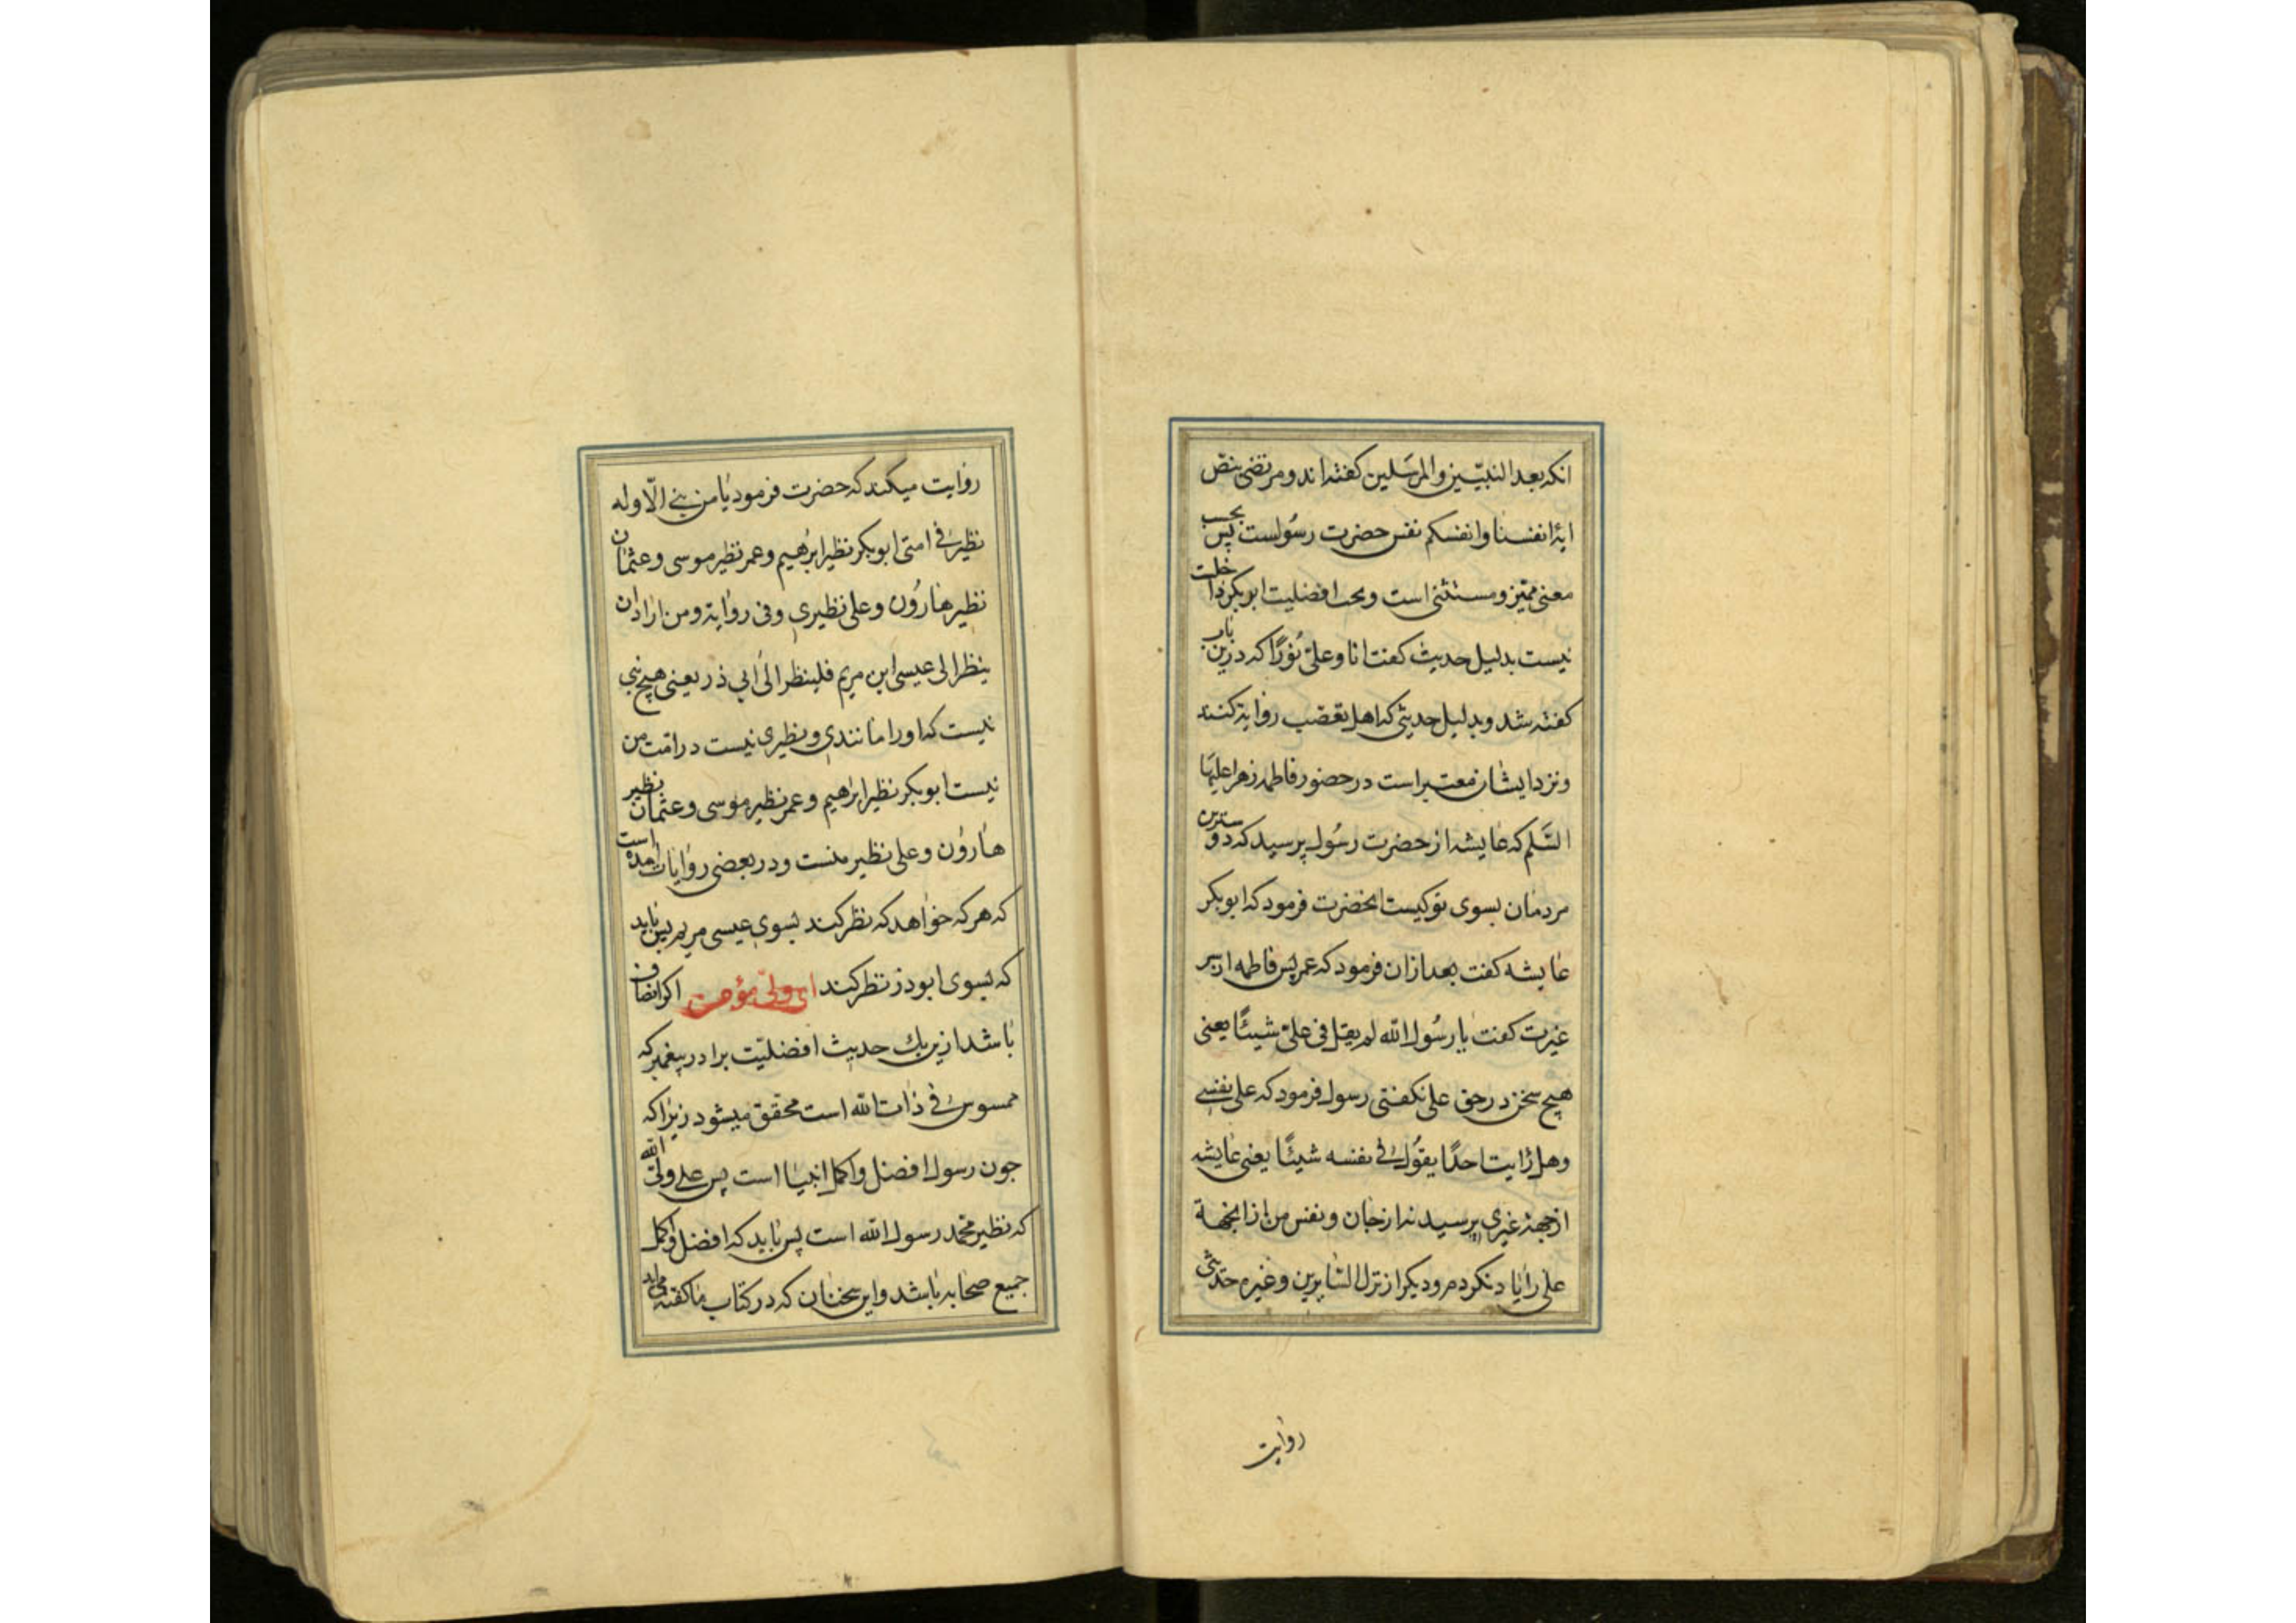 انکه بعد النبیین والمرسلین کفته اند و مرتضی بنص
ایهٔ انفسنا وانفسکم نفس حضرت رسولست پس بحسب
معنی ممیز و مستثنی است وبحث افضلیت ابوبکر داخلت
نیست بدلیل حدیث کفت انا وعلی نورًا که درین باب
کفته شد وبدلیل حدیثی که اهل تعصب روایة کنند
ونزد ایشان معتبر است در حضور فاطمه زهرا علیها
السلم که عایشه از حضرت رسول پرسید که دوسترین
مردمان بسوی تو کیست انحضرت فرمود که ابوبکر
عایشه کفت بعد ازان فرمود که عمر پس فاطمه از سر
غیرت کفت یا رسول الله لم یقل فی علی شیئًا یعنی
هیچ سخن در حق علی نکفتی رسول فرمود که علی نفسی
وهل رایت احدًا یقول فی نفسه شیئًا یعنی عایشه
از جهة غیری پرسید نه از جان ونفس من از انجهة
علی را یاد نکردم و دیکر از نزل السایرین وغیره حدیثی
روایت
روایت میکند که حضرت فرمود یا من نبی الّا وله
نظیر فی امتی ابوبکر نظیر ابرهیم وعمر نظیر موسی وعثمان
نظیر هارون وعلی نظیری وفی روایة ومن اراد ان
ینظر الی عیسی ابن مریم فلینظر الی ابی ذر یعنی هیچ نبی
نیست که اورا مانندی ونظیری نیست در امّت من
نیست ابوبکر نظیر ابراهیم وعمر نظیر موسی وعثمان نظیر
هارون وعلی نظیر منست ودر بعضی روایات امده است
که هرکه خواهد که نظر کند بسوی عیسی مریم پس باید
که بسوی ابوذر نظر کند ای ولی مؤمن اکر انصاف
باشد ازین یك حدیث افضلیّت برادر پیغمبر که
ممسوس فی ذات الله است محقق میشود زیرا که
جون رسول افضل واکمل انبیا است پس علی ولیّ الله
که نظیر محمد رسول الله است پس باید که افضل واکمل
جمیع صحابه باشد واین سخنان که در کتاب ما کفته